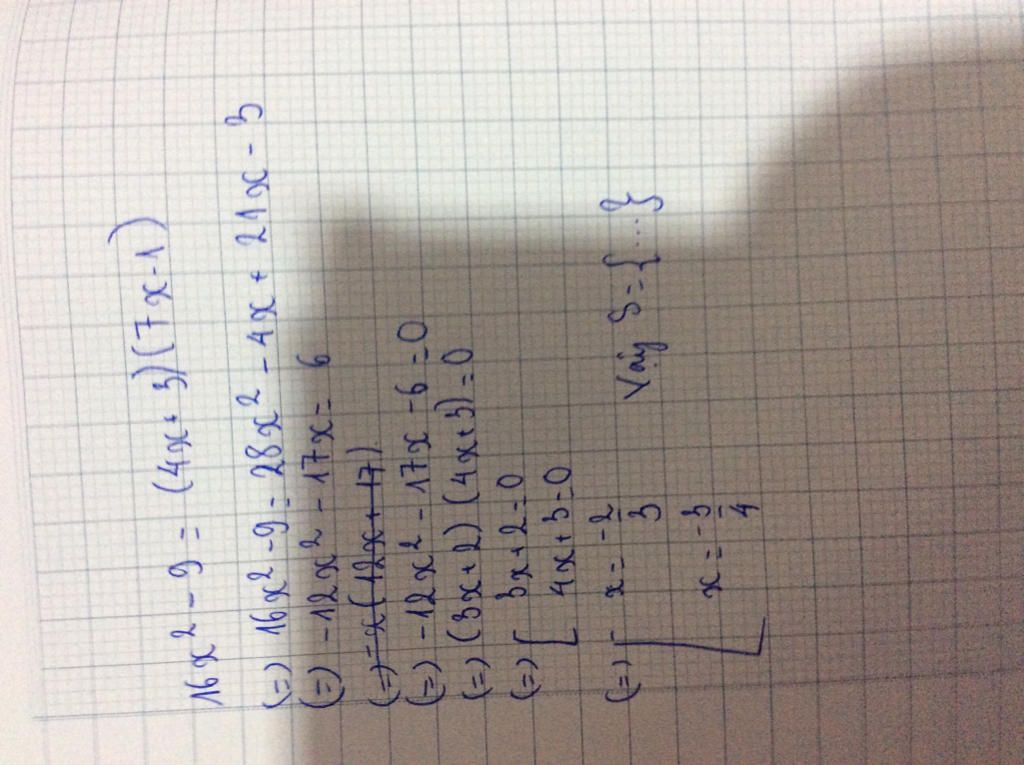 16x² - 9 = (4x + 3)(7x - 1)
(=) 16x² - 9 = 28x² - 4x + 21x - 3
(=) -12x² - 17x = 6
(=) -x(12x + 17)
(=) -12x² - 17x - 6 = 0
(=) (3x + 2)(4x + 3) = 0
(=) [ 3x + 2 = 0
4x + 3 = 0
(=) [ x = -2/3
x = -3/4
Vậy S = {...}